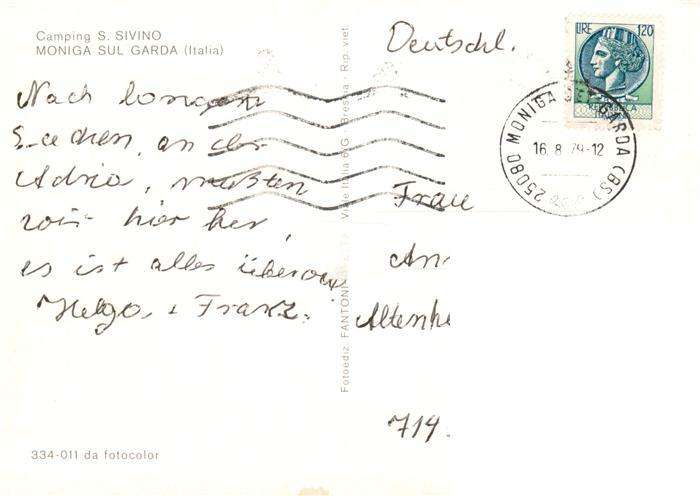 Camping S. SIVINO
MONIGA SUL GARDA (Italia)
Nach langem
Suchen, an der
Adria, mußten
wir hier her,
es ist alles
Helga + Franz.
Deutschl.
LIRE 120
25080 MONIGA DEL GARDA (BS)
16. 8. 79-12
Frau
An
Altenhe
714.
Fotoediz. FANTONI
Brescia - Rip. viet.
334-011 da fotocolor